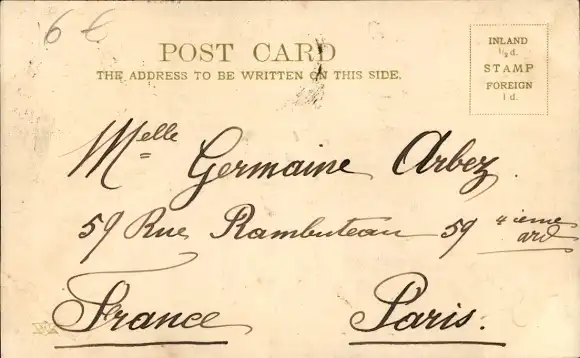 6 6
POST CARD
THE ADDRESS TO BE WRITTEN ON THIS SIDE.
INLAND
½d.
STAMP
FOREIGN
1d.
Melle Germaine Arbez
59 Rue Rambuteau 59 4ieme
ard
France Paris.